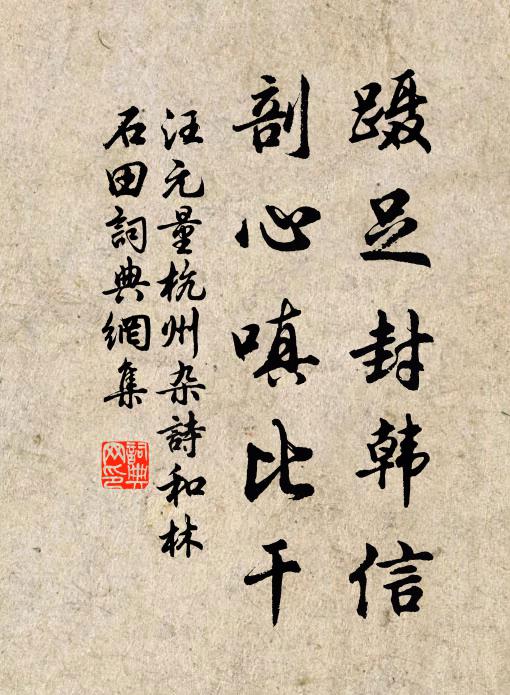 蹑足封韩信
剖心嗔比干
汪元量杭州杂詩和林
石田詞典網集
詞典
网印